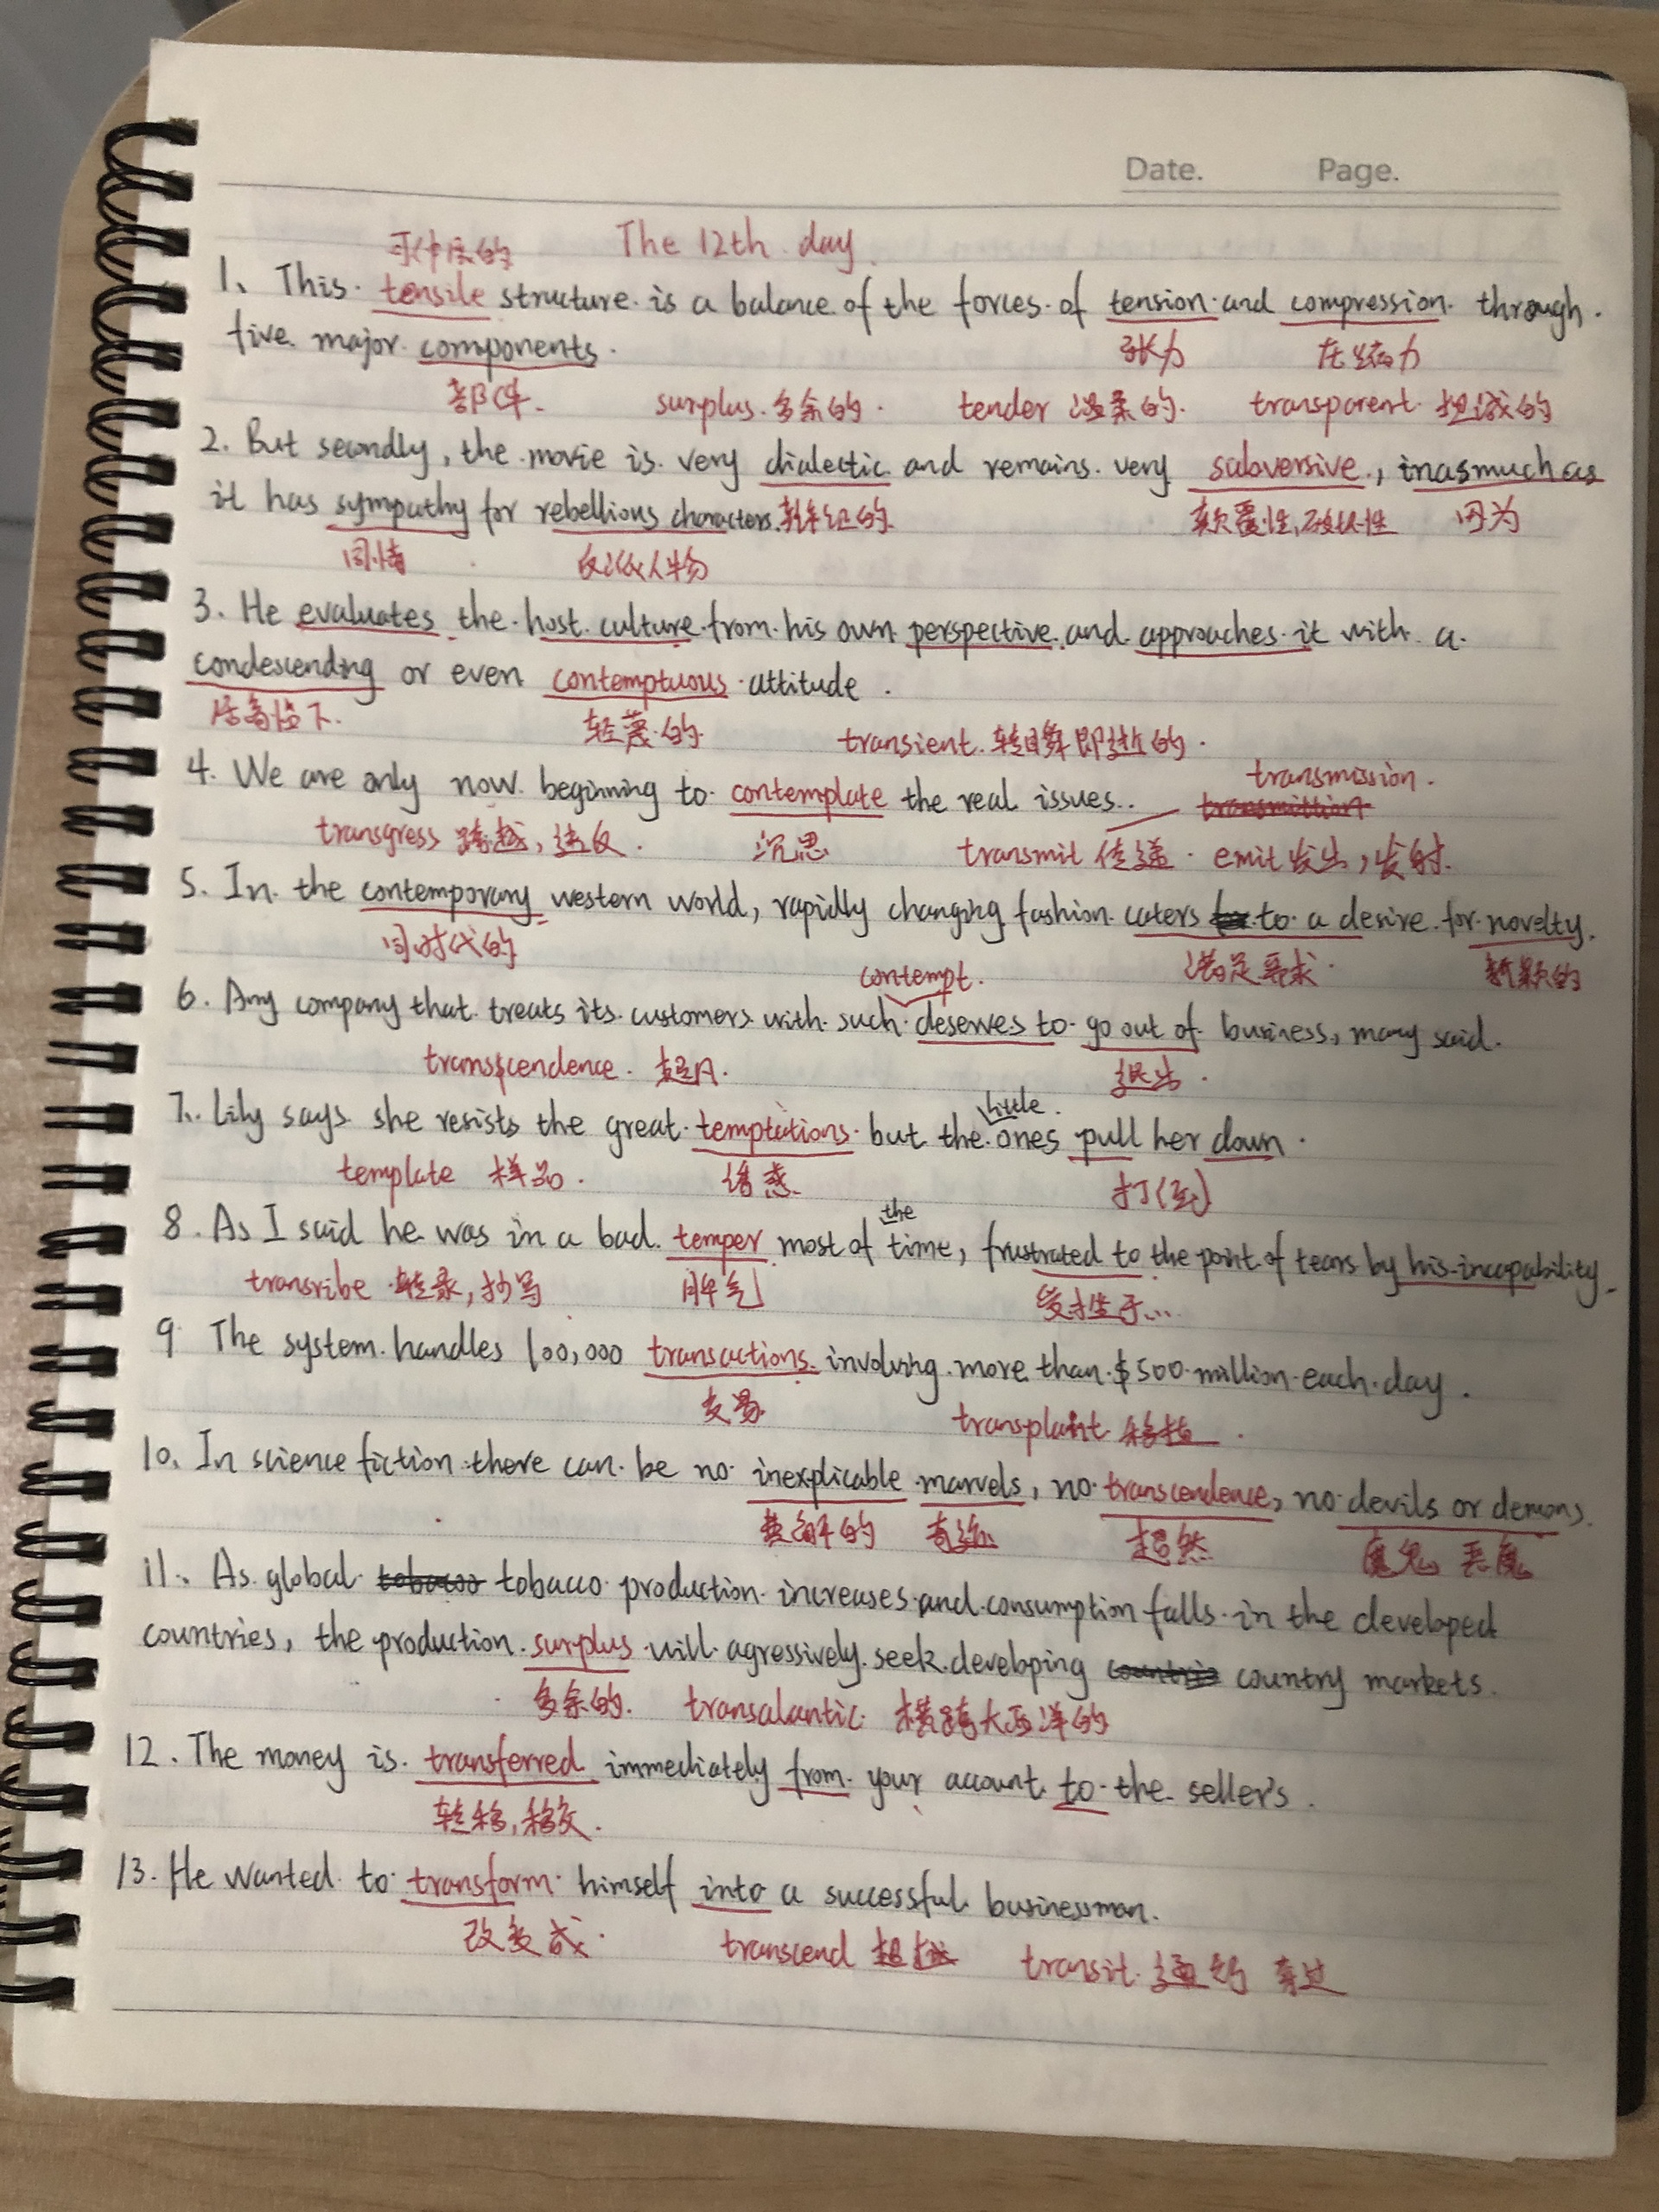 Date. Page.
The 12th day
1、This tensile structure is a balance of the forces of tension and compression through
five major components.
张力 压缩力
部件. surplus 多余的. tender 温柔的. transparent 坦诚的
2. But secondly, the movie is very dialectic and remains very subversive, inasmuch as
it has sympathy for rebellious characters. 辩证的 颠覆性,破坏性 因为
同情 反派人物
3. He evaluates the host culture from his own perspective and approaches it with a
condescending or even contemptuous attitude.
居高临下. 轻蔑的 transient 转瞬即逝的.
transmission.
4. We are only now beginning to contemplate the real issues..
transgress 跨越,违反. 沉思 transmit 传递. emit 发出,发射.
5. In the contemporary western world, rapidly changing fashion caters to a desire for novelty.
同时代的 满足要求. 新颖的
contempt.
6. Any company that treats its customers with such deserves to go out of business, many said.
transcendence. 超凡. 退出.
little
7. Lily says she resists the great temptations but the ones pull her down.
template 样品. 诱惑 打(压)
the
8. As I said he was in a bad temper most of time, frustrated to the point of tears by his incapability.
transribe 转录,抄写 脾气 受挫于...
9 The system handles 100,000 transactions involving more than $500 million each day.
交易 transplant 移植.
10. In science fiction there can be no inexplicable marvels, no transcendence, no devils or demons.
费解的 奇迹 超然 魔鬼 恶魔
11、As global tobacco production increases and consumption falls in the developed
countries, the production surplus will agressively seek developing country markets.
多余的. transalantic 横跨大西洋的
12. The money is transferred immediately from your account to the seller's.
转移,移交.
13. He wanted to transform himself into a successful businessman.
改变成. transcend 超越 transit.